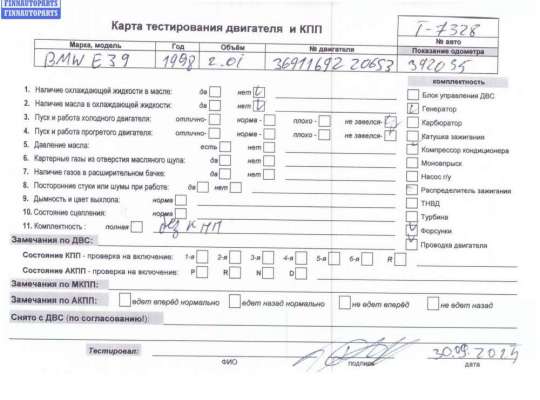 FINNAUTOPARTS
FINNAUTOPARTS
Карта тестирования двигателя и КПП
Т-7328
№ авто
Марка, модель Год Объём № двигателя Показание одометра
BMW E39 1998 2.0i 36911692 20653 392035
комплектность
1. Наличие охлаждающей жидкости в масле: да нет
2. Наличие масла в охлаждающей жидкости: да нет
3. Пуск и работа холодного двигателя: отлично- норма - плохо - не завелся-
4. Пуск и работа прогретого двигателя: отлично- норма - плохо - не завелся-
5. Давление масла: есть нет
6. Картерные газы из отверстия масляного щупа: да нет
7. Наличие газов в расширительном бачке: да нет
8. Посторонние стуки или шумы при работе: да нет
9. Дымность и цвет выхлопа: норма
10. Состояние сцепления: норма
11. Комплектность : полная без КПП
Блок управления ДВС
Генератор
Карбюратор
Катушка зажигания
Компрессор кондиционера
Моновпрыск
Насос г/у
Распределитель зажигания
ТНВД
Турбина
Форсунки
Проводка двигателя
Замечания по ДВС:
Состояние КПП - проверка на включение: 1-я 2-я 3-я 4-я 5-я 6-я R
Состояние АКПП - проверка на включение: P R N D
Замечания по МКПП:
Замечания по АКПП: едет вперёд нормально едет назад нормально не едет вперёд не едет назад
Снято с ДВС (по согласованию!):
Тестировал: 30.09.2024
ФИО подпись дата